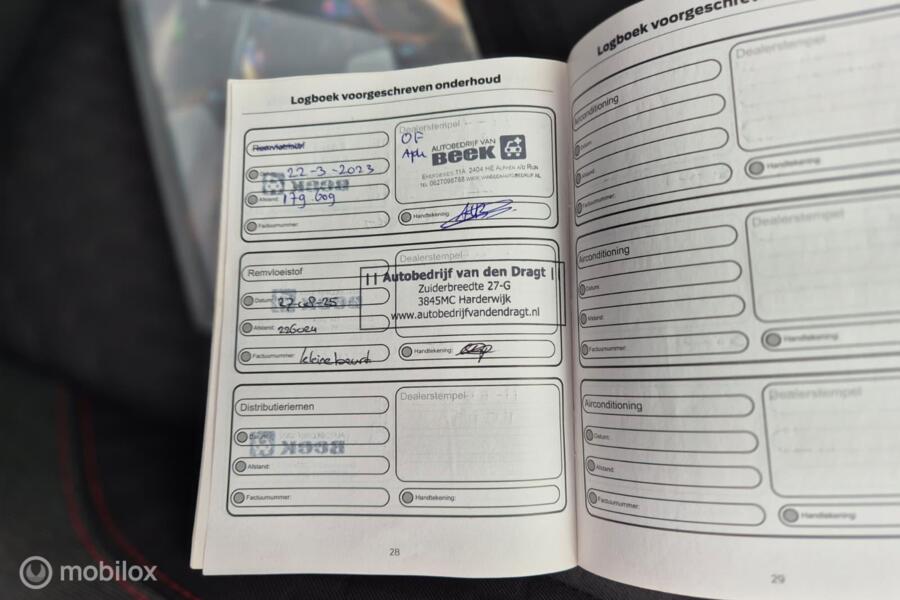 Logboek voorgeschreven onderhoud
Remvloeistof
22-3-2023
Afstand: 179.609
Factuurnummer:
Dealerstempel
OF
Aph
AUTOBEDRIJF VAN
BEEK
ENERGIEWEG 11A 2404 HE ALPHEN A/D RIJN
TEL 0627098788 WWW.VANBEEKAUTOBEDRIJF.NL
Handtekening:
Remvloeistof
Datum: 27-08-25
Afstand: 226024
Factuurnummer: kleine beurt
Dealerstempel
|| Autobedrijf van den Dragt |
Zuiderbreedte 27-G
3845MC Harderwijk
www.autobedrijfvandendragt.nl
Handtekening:
Distributieriemen
Datum:
Afstand:
Factuurnummer:
Dealerstempel
Handtekening:
28
Logboek voorgeschreven
Airconditioning
Datum:
Afstand:
Factuurnummer:
Dealerstempel
Handtekening:
Airconditioning
Datum:
Afstand:
Factuurnummer:
Dealerstempel
Handtekening:
Airconditioning
Datum:
Afstand:
Factuurnummer:
Dealerstempel
Handtekening:
29
mobilox